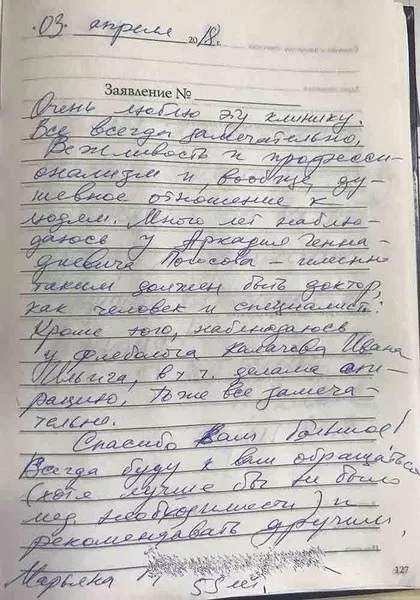 «03» апреля 2018 г.
Заявление №
Очень люблю эту клинику.
Все всегда замечательно,
Вежливость и професси-
онализм и, вообще, ду-
шевное отношение к
людям. Много лет наблю-
даюсь у Аркадия Генна-
диевича – именно
таким должен быть доктор,
как человек и специалист.
Кроме того, наблюдаюсь
у флеболога Калачёва Ивана
Ильича, в т.ч. делала опе-
рацию, тоже все замеча-
тельно.
Спасибо Вам большое!
Всегда буду к вам обращаться
(хотя лучше бы не было
мед. необходимости) и
рекомендовать другим.
Марьяна 55 лет.
127